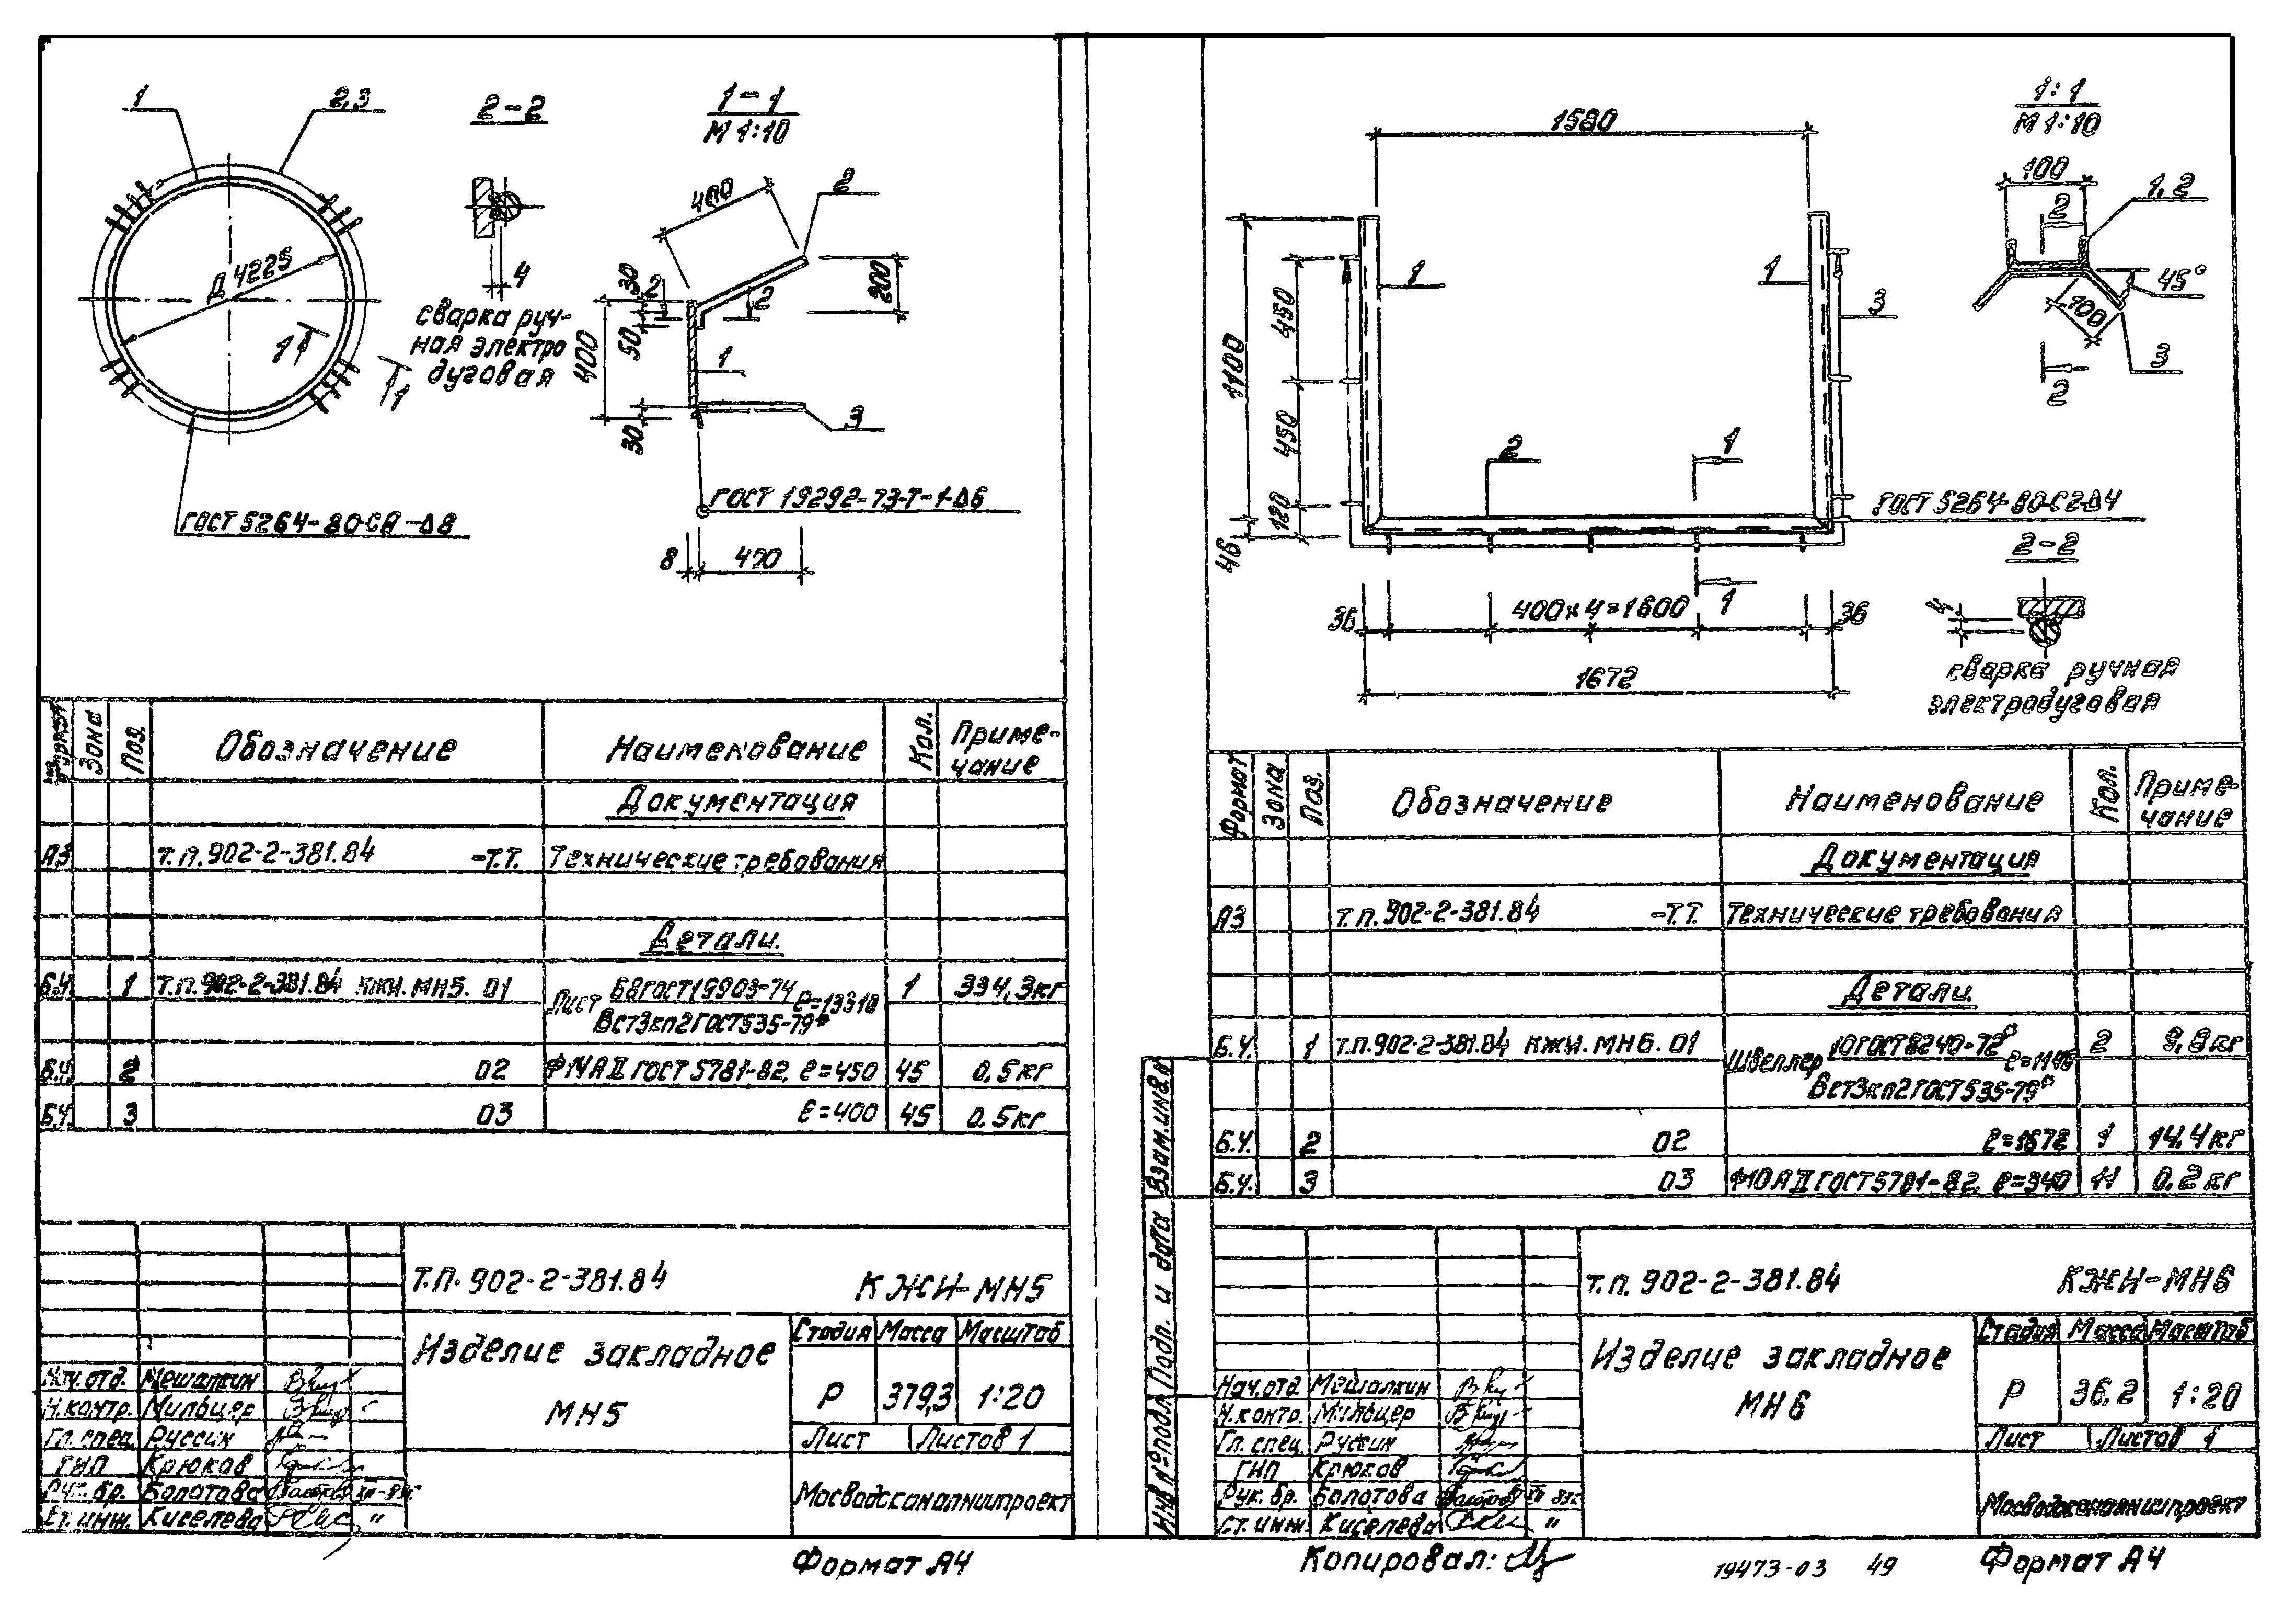 1
2,3
Д 4225
1
1
ГОСТ 5264-80-С8-Δ8
2-2
4
сварка руч-
ная электро
дуговая
1-1
М 1:10
400
2
30
2
2
200
50
400
1
30
3
ГОСТ 19292-73-Т-1-Δ6
8
400
Зона
Поз.
Обозначение
Наименование
Кол.
Приме-
чание
Документация
А3
т.п. 902-2-381.84 -Т.Т.
Технические требования
Детали.
Б.Ч. 1 Т.п. 902-2-381.84 КЖИ.МН5.01
Лист Б8ГОСТ19903-74 ℓ=13310
ВСт3кп2ГОСТ535-79*
1 334,3кг
Б.Ч. 2 02 Ф14АII ГОСТ 5781-82, ℓ=450 45 0,5кг
Б.Ч. 3 03 ℓ=400 45 0,5кг
Т.П. 902-2-381.84 КЖИ-МН5
Изделие закладное
МН5
Стадия Масса Масштаб
Р 379,3 1:20
Лист Листов 1
Мосводоканалниипроект
Нач.отд. Мешалкин
Н.контр. Мильцер
Гл. спец. Руссин
ГИП Крюков
Рук. бр. Болотова
Ст. инж. Киселева "
Формат А4
1580
1:1
М 1:10
100
2
1,2
45°
100
3
2
1
1
3
1100
450
450
120
46
2
1
ГОСТ 5264-80-С2-Δ4
36
400×4=1600
1
36
1672
2-2
4
сварка ручная
электродуговая
Формат
Зона
Поз.
Обозначение
Наименование
Кол.
Приме-
чание
Документация
А3
т.п. 902-2-381.84 -Т.Т.
Технические требования
Детали.
Б.Ч. 1 т.п. 902-2-381.84 КЖИ.МН6.01
Швеллер 10ГОСТ8240-72* ℓ=1146
ВСт3кп2ГОСТ535-79*
2 9,8кг
Б.Ч. 2 02 ℓ=1672 1 14,4кг
Б.Ч. 3 03 Ф10АII ГОСТ5781-82, ℓ=340 11 0,2кг
Взам.инв.№
Подп. и дата
Инв №подл
т.п. 902-2-381.84 КЖИ-МН6
Изделие закладное
МН6
Стадия Масса Масштаб
Р 36,2 1:20
Лист Листов 1
Мосводоканалниипроект
Нач.отд. Мешалкин
Н.контр. Мильцер
Гл. спец. Руссин
ГИП Крюков
Рук. бр. Болотова
Ст. инж. Киселева "
Копировал:
19473-03 49
Формат А4